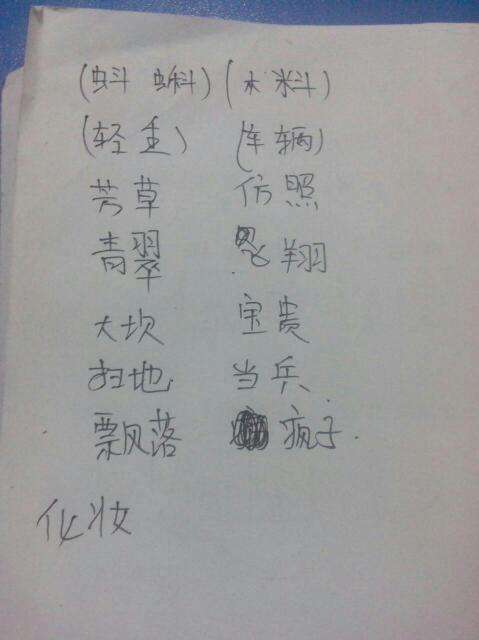 (蚪蝌)(木料)
(轻重) (车辆)
芳草 仿照
青翠 飞翔
大坎 宝贵
扫地 当兵
飘落 疯子.
化妆